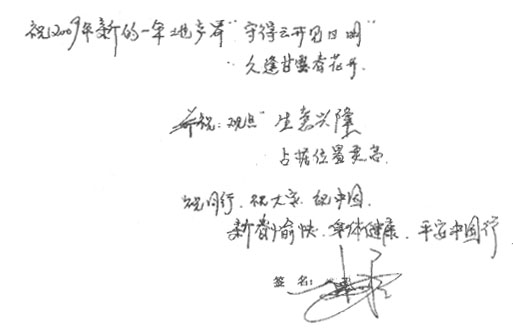 祝2009年新的一年地产界"守得云开见日明"
"久逢甘露春花开.
并祝:观点"生意兴隆
占据位置更高.
祝同行.祝大家.祝中国.
新春愉快.身体健康.平安中国行
签名: